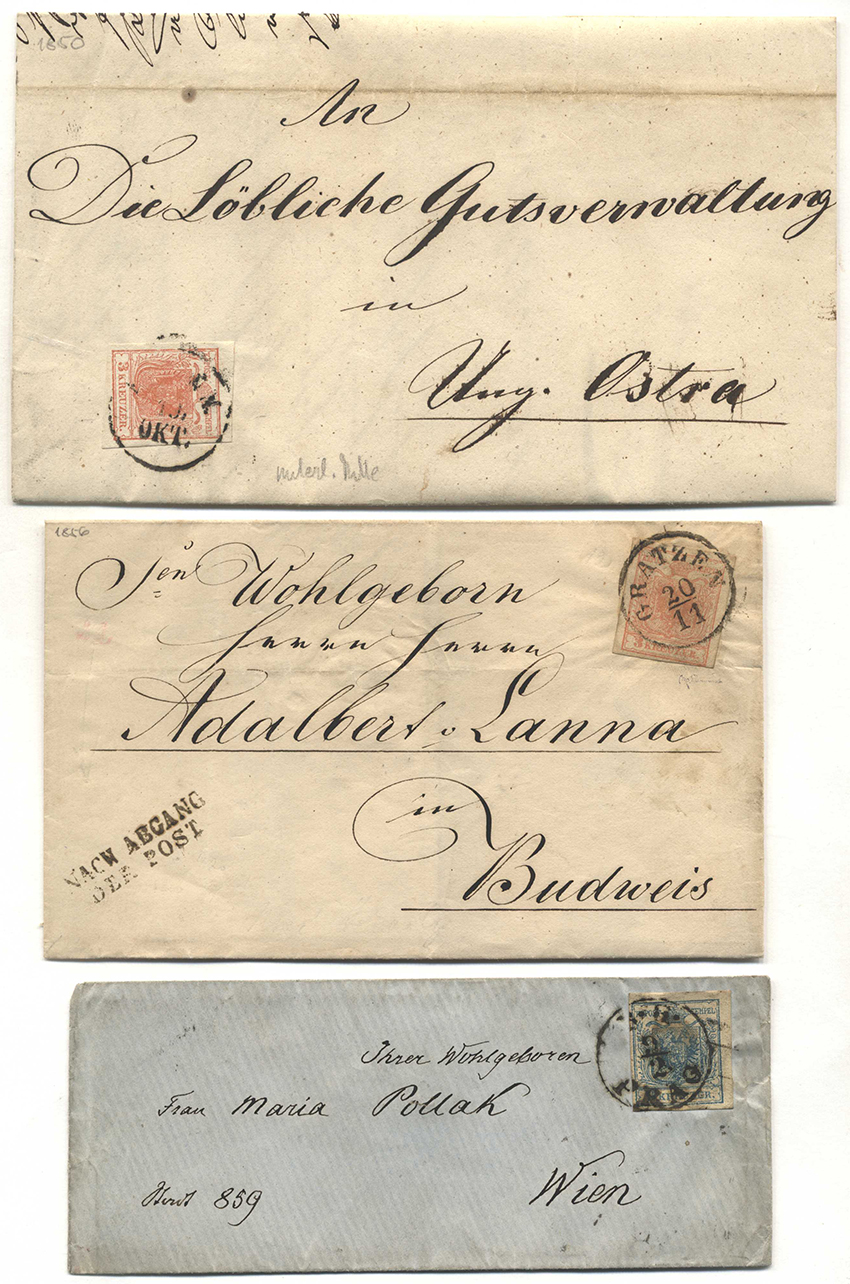 1850
An
Die Löbliche Gutsverwaltung
in
Ung. Ostra
3 KREUZER.
OKT.
1856
Sen Wohlgeborn
Herrn Herrn
Adalbert v. Lanna
in
Budweis
GRATZEN
20/11
3 KREUZER
NACH ABGANG
DER POST
Ihrer Wohlgeboren
Frau Maria Pollak
859
Wien
PRAG